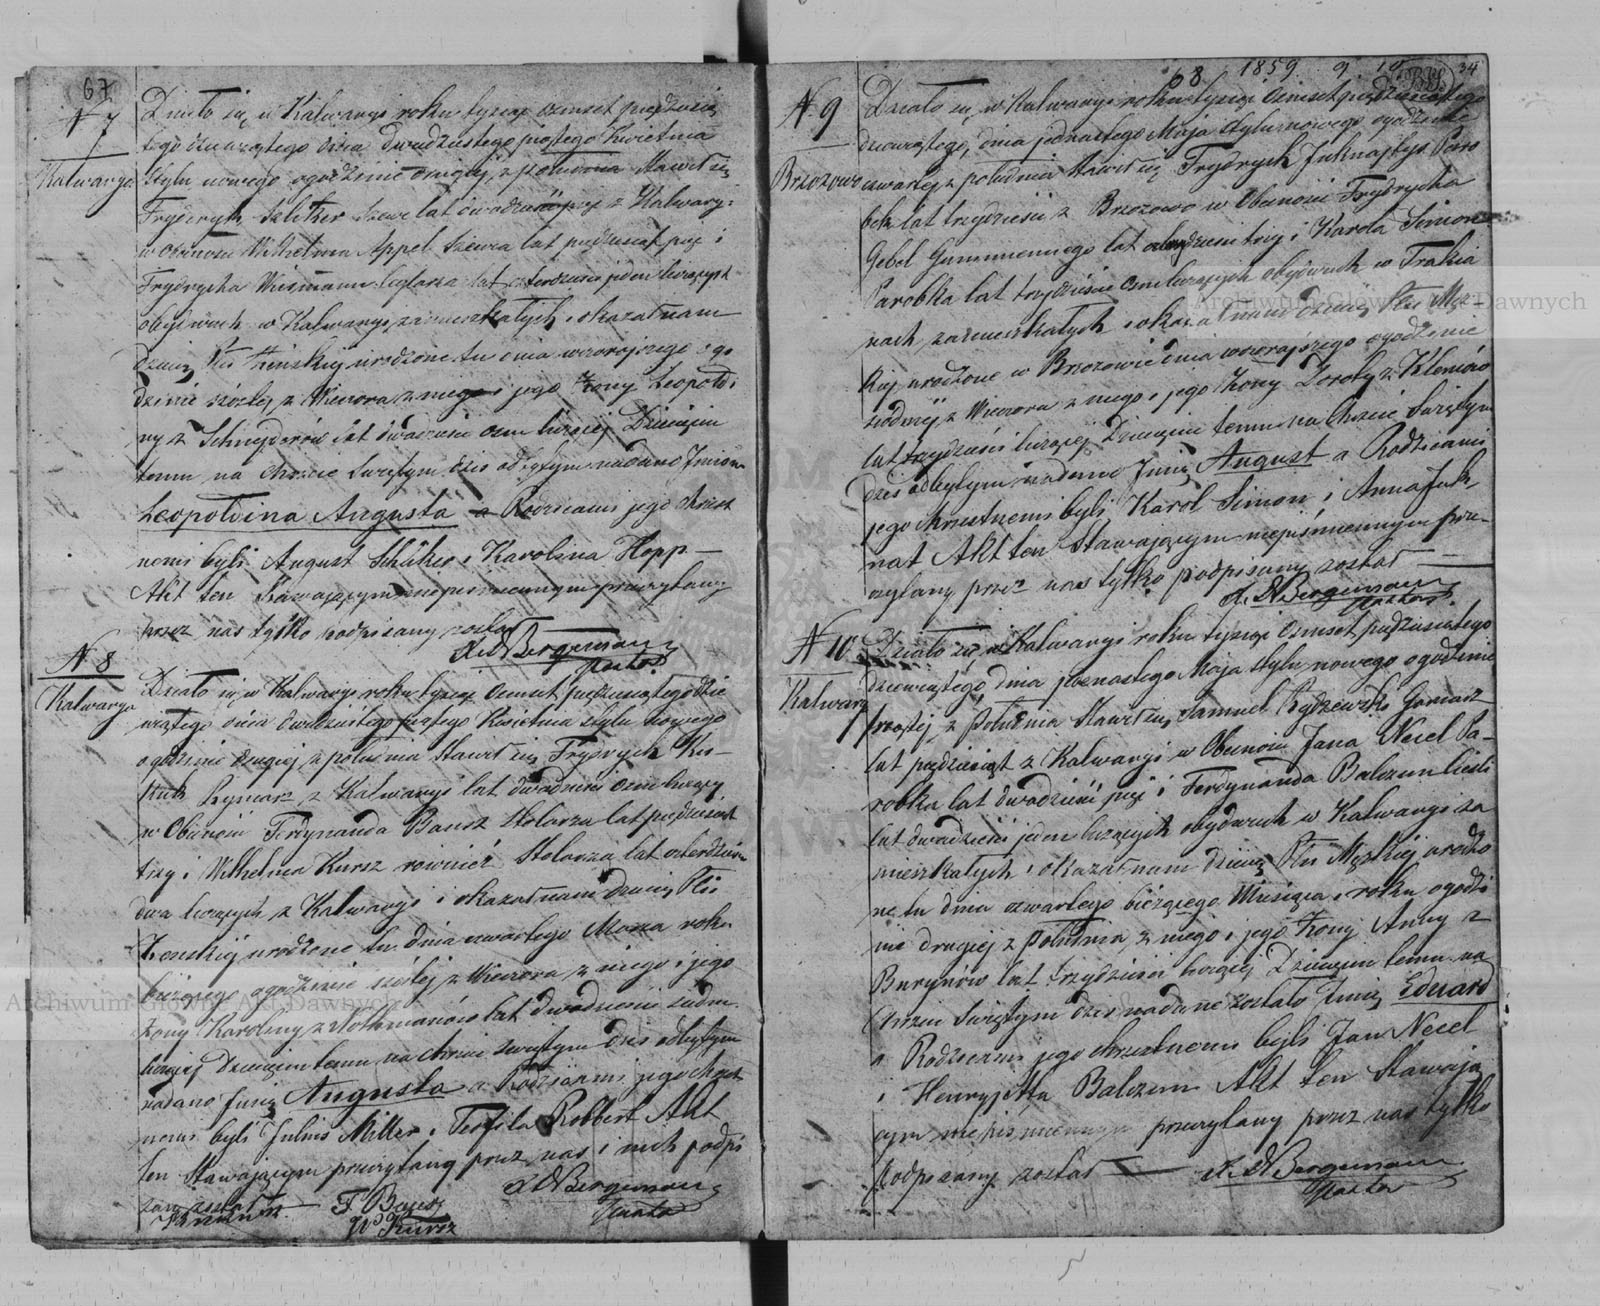 67
N 7
Kalwarya
Działo się w Kalwaryi roku tysiąc ośmset pięćdziesią
tego dziewiątego dnia dwudziestego piątego Kwietnia
stylu nowego o godzinie drugiej z południa Stawił się
Fryderyk Szlitker Szewc lat dwadzieścia pięć z Kalwaryi
w obecności Wilhelma Appel Szewca lat pięćdziesiąt pięć i
Fryderyka Wiesmann lat czterdzieści jeden liczących
obydwuch w Kalwaryi zamieszkałych i okazał nam
dziecię Płci Żeńskiej urodzone tu dnia wczorajszego o go
dzinie szóstej z Wieczora z niego i jego Żony Leopoldi
ny z Schneyderów lat dwadzieścia osm liczącej Dziecięciu
temu na Chrzcie Świętym dziś odbytym nadano Imiona
Leopoldina Augusta a Rodzicami jego chrzest
nemi byli August Schliker i Karolina Hopp
Akt ten Stawającym niepismiennym przeczytany
przez nas tylko podpisany został
X. D Bergemann
Pastor
N 8
Kalwarya
Działo się w Kalwaryi roku tysiąc ośmset pięćdziesiątego dzie
wiątego dnia dwudziestego piątego Kwietnia stylu nowego
o godzinie drugiej z południa Stawił się Frydrych
Rymarz z Kalwaryi lat dwadzieścia osm liczący
w Obecności Ferdynanda Bausz Stolarza lat pięćdziesiąt
trzy i Wilhelma Kursz również Stolarza lat czterdzieści
dwa liczących z Kalwaryi i okazał nam dziecię Płci
Żeńskiej urodzone tu dnia czwartego Marca roku
bieżącego o godzinie szóstej z Wieczora z niego i jego
żony Karoliny z lat dwadzieścia siedm
liczącej Dziecięciu temu na chrzcie świętym dziś odbytym
nadano Imię Augusta a Rodzicami jego chrzest
nemi byli Julius Miller i Teofila Robbert Akt
ten Stawającym przeczytany przez nas i nich podpi
sany został
X. D Bergemann
Pastor
F Bausz
W Kursz
68 1859. 9. 10 34
N. 9
Brzozowo
Działo się w Kalwaryi roku tysiąc Ośmset pięćdziesiątego
dziewiątego, dnia jednastego Maja stylu nowego o godzinie
czwartej z południa Stawił się Frydrych Juknajtys Paro
bek lat trzydzieści z Brzozowo w Obecności Frydrycha
Gebel Gumiennego lat trzy i Karola Simon
Parobka lat trzydzieście osm liczących obydwuch w Trakia
nach zamieszkałych i okazał nam dziecię Płci Męz
kiej urodzone w Brzozowie dnia wczorajszego o godzinie
siódmej z Wieczora z niego i jego Żony Doroty z Klemów
lat trzydzieści liczącej Dziecięciu temu na Chrzcie Świętym
dziś odbytym nadano Imię August a Rodzicami
jego chrzestnemi byli Karol Simon i Anna Juk
nat Akt ten Stawającym niepismiennym prze
czytany przez nas tylko podpisany został
X. D Bergemann
Pastor
N 10
Kalwarya
Działo się w Kalwaryi roku tysiąc Ośmset pięćdziesiątego
dziewiątego dnia jedenastego Maja stylu nowego o godzinie
piątej z południa Stawił się Samuel Rydzewski Garncarz
lat pięćdziesiąt z Kalwaryi w Obecności Jana Nesel Pa
robka lat dwadzieścia pięć i Ferdynanda Balczun Cieśli
lat dwadzieścia jeden liczących obydwuch w Kalwaryi za
mieszkałych i okazał nam dziecię Płci Męzkiej urodzo
ne tu dnia czwartego bieżącego Miesiąca i roku o godzi
nie drugiej z południa z niego i jego Żony Anny z
Burynów lat trzydzieści liczącej Dziecięciu temu na
Chrzcie Świętym dziś nadane zostało Imię Eduard
a Rodzicami jego chrzestnemi byli Jan Nesel
i Henryjetta Balczun Akt ten Stawają
cym niepismiennym przeczytany przez nas tylko
podpisany został
X. D Bergemann
Pastor
Archiwum Główne Akt Dawnych
Archiwum Główne Akt Dawnych